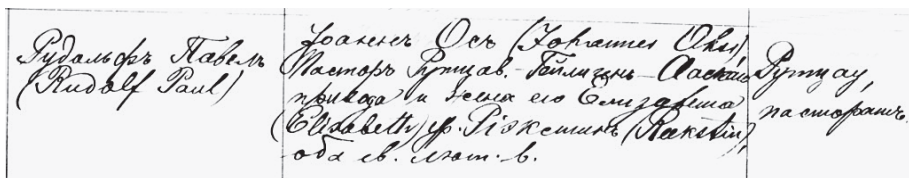 Рудольфъ Павелъ
(Rudolf Paul)
Іоаннъ Осъ (Johannes Ohs),
Пасторъ Рутцав.-Гейлиген-Ааскаго
прихода и жена его Елизавета
(Elisabeth) ур. Рѣкстинъ (Rekstin),
оба ев. лют. в.
Рутцау,
пасторатъ.